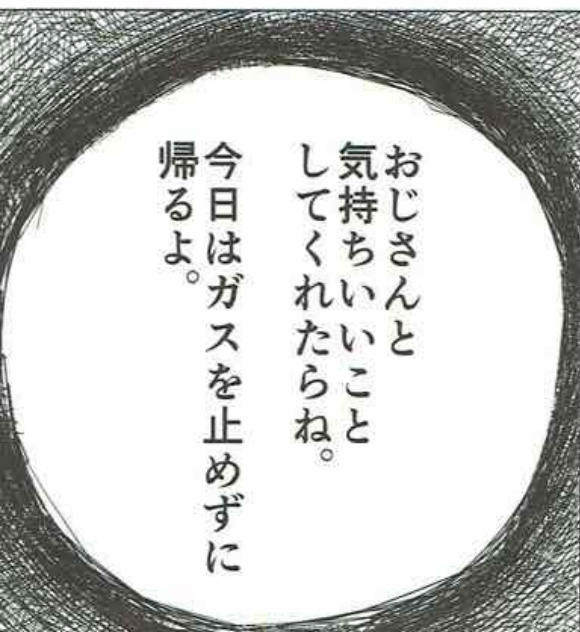 おじさんと
気持ちいいこと
してくれたらね。
今日はガスを止めずに
帰るよ。